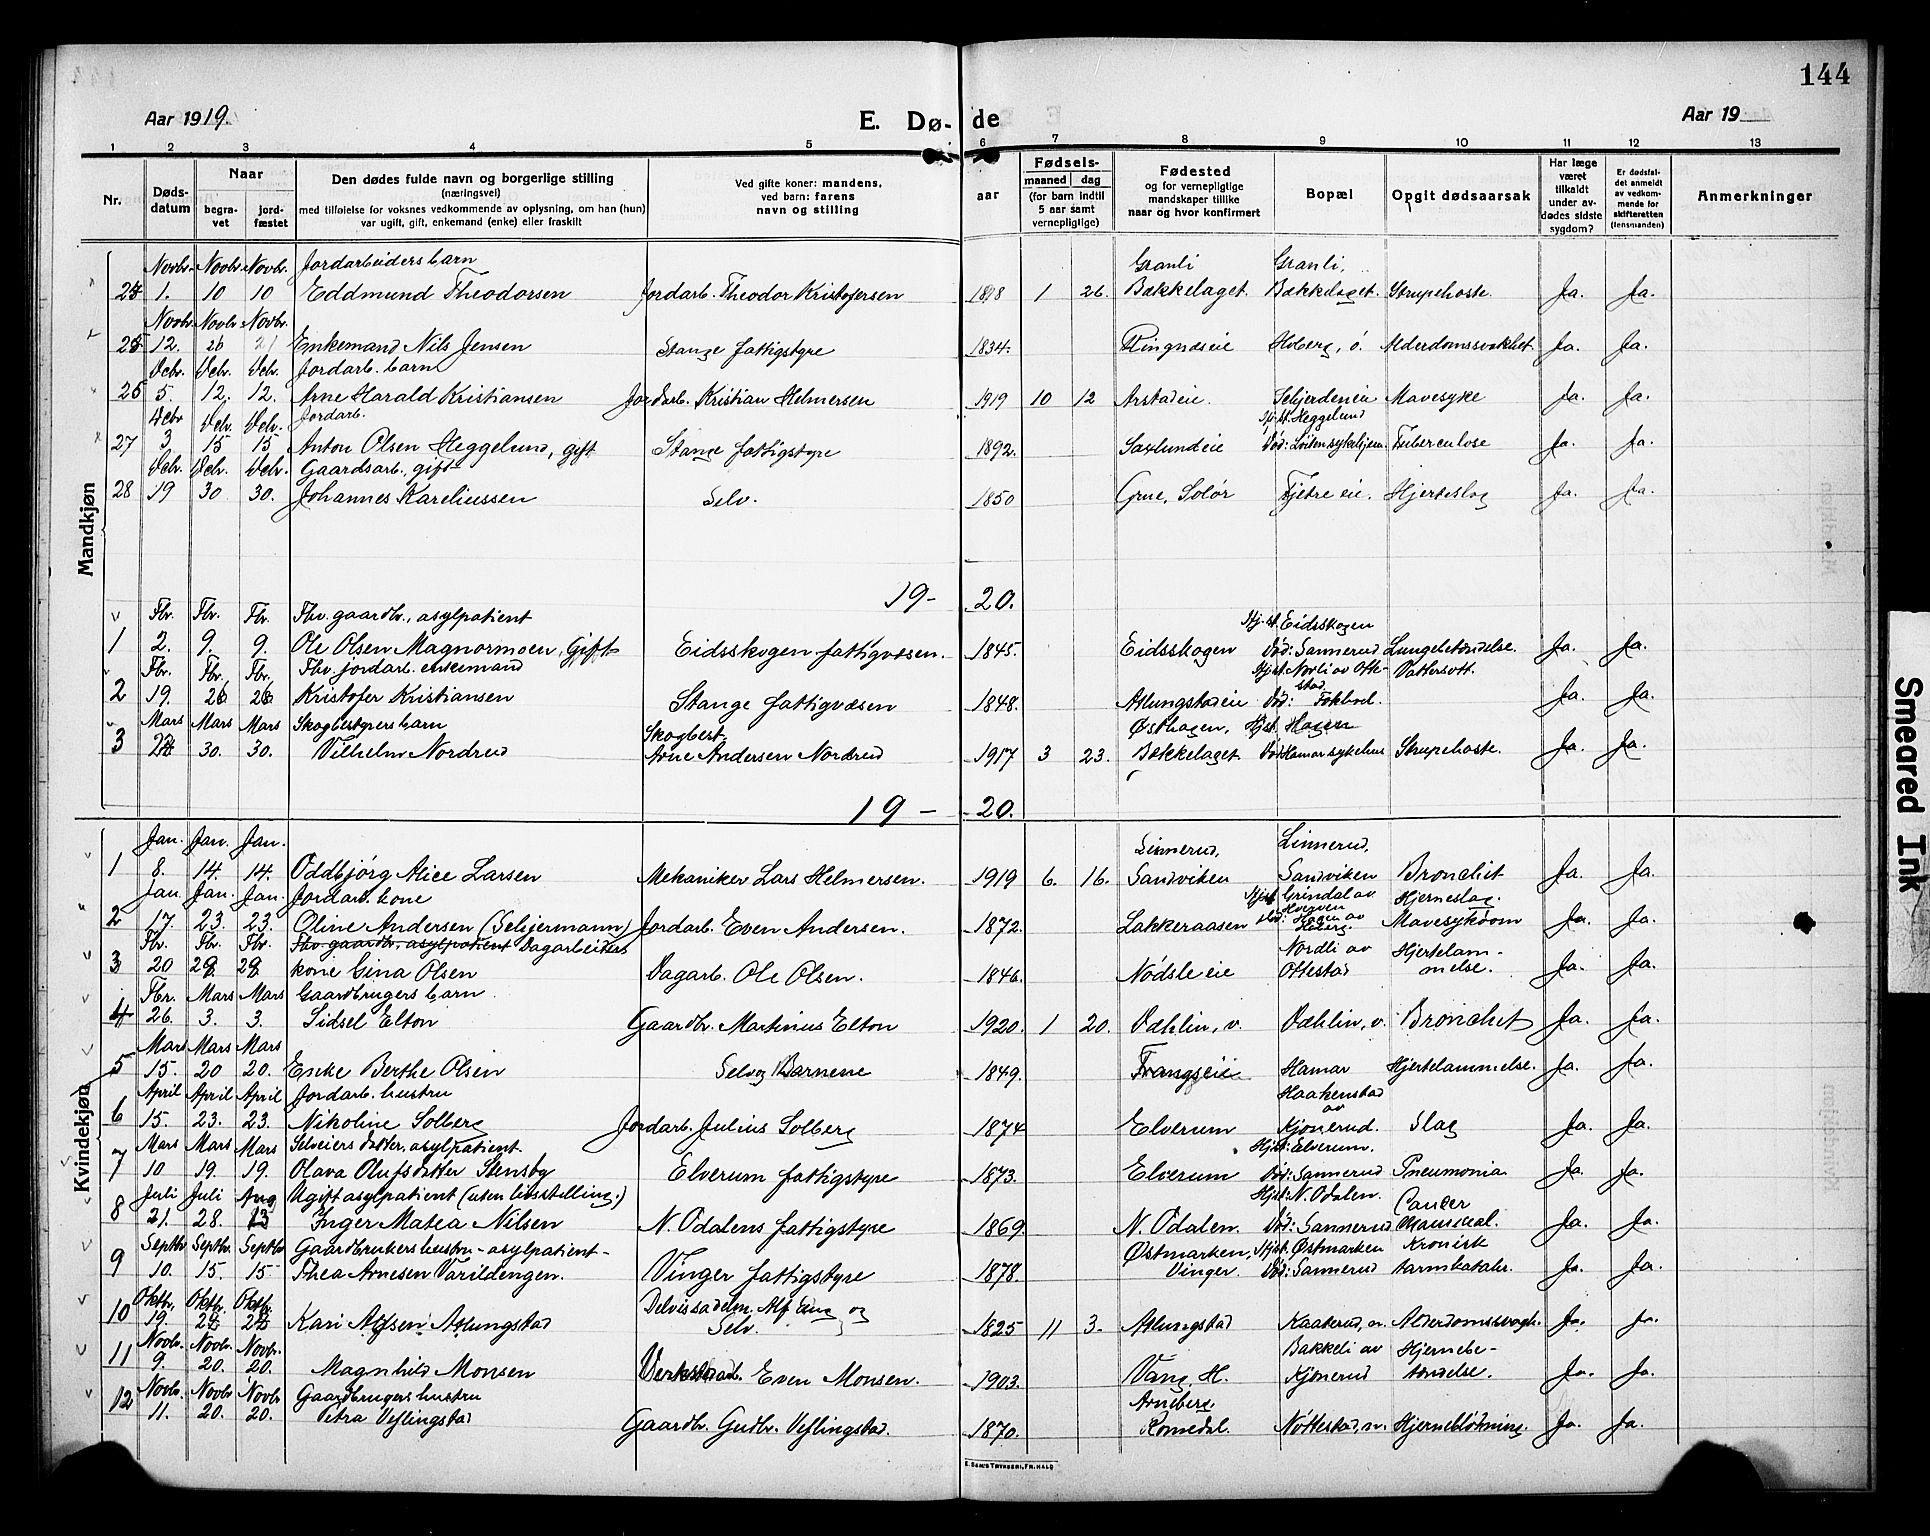 144
Aar 1919.
E. Dø- de
Aar 19
1 2 3 4 5 6 7 8 9 10 11 12 13
Nr.
Døds-datum
Naar
begra-vet
jord-fæstet
Den dødes fulde navn og borgerlige stilling
(næringsvei)
med tilføielse for voksnes vedkommende av oplysning, om han (hun)
var ugift, gift, enkemand (enke) eller fraskilt
Ved gifte koner: mandens,
ved barn: farens
navn og stilling
aar
Fødsels-
maaned dag
(for barn indtil
5 aar samt
vernepligtige)
Fødested
og for vernepligtige
mandskaper tillike
naar og hvor konfirmert
Bopæl
Opgit dødsaarsak
Har læge
været
tilkaldt
under av-
dødes sidste
sygdom?
Er dødsfal-
det anmeldt
av vedkom-
mende for
skifteretten
(lensmanden)
Anmerkninger
Mandkjøn
Novbr. Novbr. Novbr. Jordarbeiders barn Granli Granli,
24 1. 10 10 Eddmund Theodorsen Jordarb. Theodor Kristofersen 1918 1 26. Bækkelaget. Bækkelaget. Strupehoste. Ja. Ja.
Novbr. Novbr. Novbr.
25 12. 20 21 Enkemand Nils Jensen Stange fattigstyre 1834. Ringnæseie Hoberg, ö. Alderdomssvakhet. Ja. Ja.
Debr. Debr. Debr. Jordarb. barn
26 5. 12. 12. Arne Harald Kristiansen Jordarb. Kristian Helmersen 1919 10 12 Arstadeie. Seljerdeneie Mavesyke Ja. Ja.
Debr Debr. Debr. Jordarb. Hj.st. Heggelund
27 3 15 15 Anton Olsen Heggelund, gift Stange fattigstyre 1892. Saxlundeie Död: Löiten sykehjem Tuberculose Ja. Ja.
Debr. Debr. Debr. Gaardsarb., gift
28 19 30 30. Johannes Kareliussen Selv. 1850 Grue, Solør Tjetre eie. Hjerteslag Ja. Ja.
19- 20.
Fbr. Fbr. Fbr. Fhv. gaardbr., asylpatient Hj.st. Eidsskogen
1 2. 9. 9. Ole Olsen Magnormoen, Gift Eidsskogen fattigvæsen. 1845. Eidsskogen Död: Sannerud Lungebetændelse. Ja. Ja.
Fbr. Fbr. Fbr. Fhv. jordarb. enkemand Hjst. Nordli av Otte-stad Vattersott.
2 19. 26 26 Kristofer Kristiansen Stange fattigvæsen 1848. Atlungstadeie Död: Ja. Ja.
Mars Mars Mars Skogbestyrers barn Skogbest. Østhagen, Hjst. Hagen
3 22 30. 30. Vilhelm Nordrud Arne Andersen Nordrud 1917 3 23. Bækkelaget. Död Hamar sykehus Strupehoste. Ja. Ja.
19 - 20.
Kvindekjøn
Jan. Jan. Jan. Linnerud, Linnerud,
1 8. 14. 14. Oddbjörg Alice Larsen Mekaniker Lars Helmersen. 1919 6. 16. Sandviken Sandviken Bronchit Ja. Ja.
Jan. Jan. Jan. Jordarb. kone Hjst. Gröndal av Hjerneslag.
2 17. 23. 23. Oline Andersen (Seljermann) Jordarb. Even Andersen. 1872. Lakkeraasen Död: Hagen av Mavesykdom Ja. Ja.
Fbr. Fbr. Fbr. Fhv. gaardbr. asylpatient Dagarbeiders Nordli av Hjertelam-
3 20 29. 29. kone Gina Olsen Dagarb. Ole Olsen. 1846. Nödsle eie Ottestad melse. Ja. Ja.
Fbr. Mars Mars Gaardbrugers barn
4 26. 3. 3. Sidsel Elton Gaardbr. Martinus Elton 1920. 1 20. Dæhlin, v. Dæhlin, v. Bronchit Ja. Ja.
Mars Mars Mars
5 15. 20 20. Enke Berthe Olsen Selv og Barnene 1849. Frangseie Hamar Hjertelammelse. Ja. Ja.
April April April Jordarb. hustru Haakenstad av
6 15. 23. 23. Nikoline Solberg Jordarb. Julius Solberg 1874 Elverum Kjonerud. Slag Ja. Ja.
Mars Mars Mars Selveiers datter, asylpatient Hjst: Elverum.
7 10 19. 19. Olava Olufsdatter Stensby Elverum fattigstyre 1873. Elverum Död: Sannerud Pneumonia Ja. Ja.
Juli Juli Aug Ugift asylpatient (uten livsstelling.) Hjst: N. Odalen. Cancer
8 21. 28. 13 Inger Matea Nilsen N. Odalens fattigstyre 1869. N. Odalen. Död: Sannerud Ja. Ja.
Septbr. Septbr. Septbr Gaardbrukers hustru - asylpatient - Østmarken, Hjst. Østmarken Kronisk
9 10. 15. 15 Thea Arnesen Varildengen. Vinger fattigstyre 1878. Vinger. Död: Sannerud tarmkatahr. Ja. Ja.
Oktbr. Oktbr. Oktbr. Delvis sadelm. Alf Eng og
10 19. 28 28 Kari Alfsen Atlungstad Selv. 1825 11 3. Atlungstad Kaaterud, n. Alderdomssvagh. Ja. Ja.
Novbr. Novbr. Novbr. Bakkeli av Hjernebe-
11 9. 20. 20. Magnhild Monsen Verkstedarb. Even Monsen. 1903. Vang, H. Kjonerud tændelse. Ja. Ja.
Novbr. Novbr. Novbr Gaardbrugers hustru Arneberg
12 11. 20. 20. Petra Veflingstad Gaardbr. Gudbr. Veflingstad. 1870. Romedal. Nöttestad, n. Hjerneblödning. Ja. Ja.
E. Sem's Trykkeri, Fr.hald
Smeared Ink